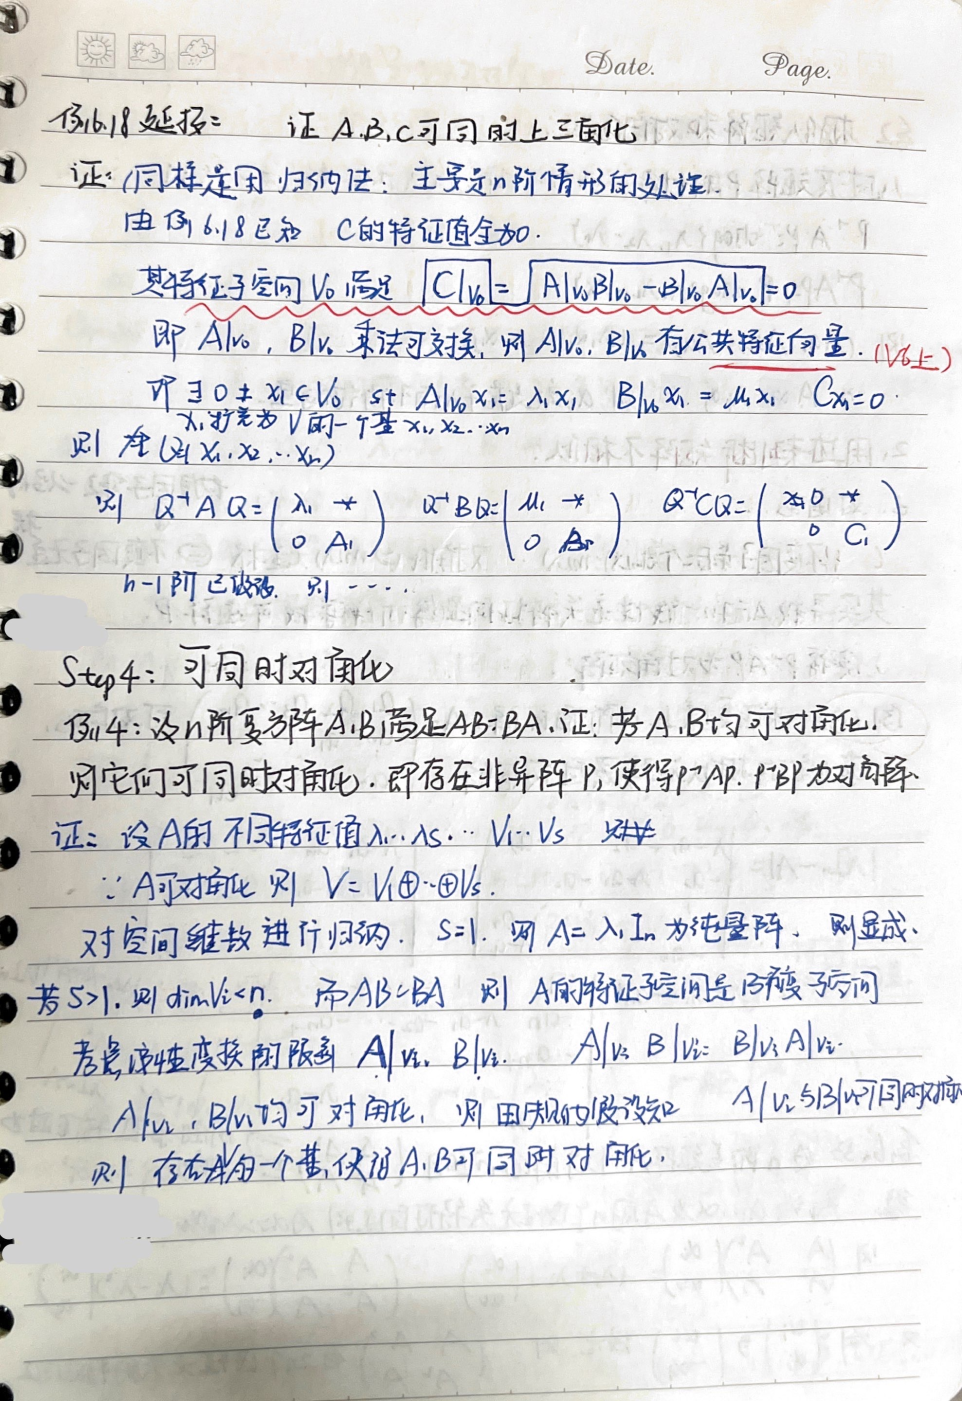 Date. Page.
例6.18延拓： 证A.B.C可同时上三角化
证：(同样是用归纳法：主要是n阶情形的处理.
由例6.18已知 C的特征值全为0.
其特征子空间V₀满足 C|v₀ = A|v₀B|v₀ - B|v₀A|v₀ = 0
即 A|v₀, B|v₀ 乘法可交换, 则A|v₀, B|v₀有公共特征向量. (V₀上)
即∃0≠x₁∈V₀ st A|v₀x₁=λ₁x₁ B|v₀x₁=μ₁x₁ Cx₁=0.
x₁扩充为V的一个基x₁,x₂…xn
则 (x₁,x₂,…xn)
则 Q⁻¹AQ=(λ₁ * Q⁻¹BQ=(μ₁ * Q⁻¹CQ=( 0 *
0 A₁) 0 ) 0 C₁)
n-1阶已成立. 则 ….
Step4: 可同时对角化
例4: 设n阶复方阵A.B满足AB=BA.证: 若A.B均可对角化.
则它们可同时对角化.即存在非异阵P,使得P⁻¹AP. P⁻¹BP为对角阵.
证: 设A的不同特征值λ₁…λs… V₁…Vs
∵A可对角化 则 V=V₁⊕…⊕Vs.
对空间维数进行归纳. S=1. 则A=λ₁In为纯量阵. 则显成.
若S>1.则dimVi<n. 而AB=BA 则 A的特征子空间是B不变子空间
考虑线性变换的限制 A|vi, B|vi. A|vi B|vi= B|vi A|vi.
A|vi, B|vi均可对角化, 则由归纳假设知 A|vi与B|vi可同时对角
则 存在V的一个基,使得A.B可同时对角化.